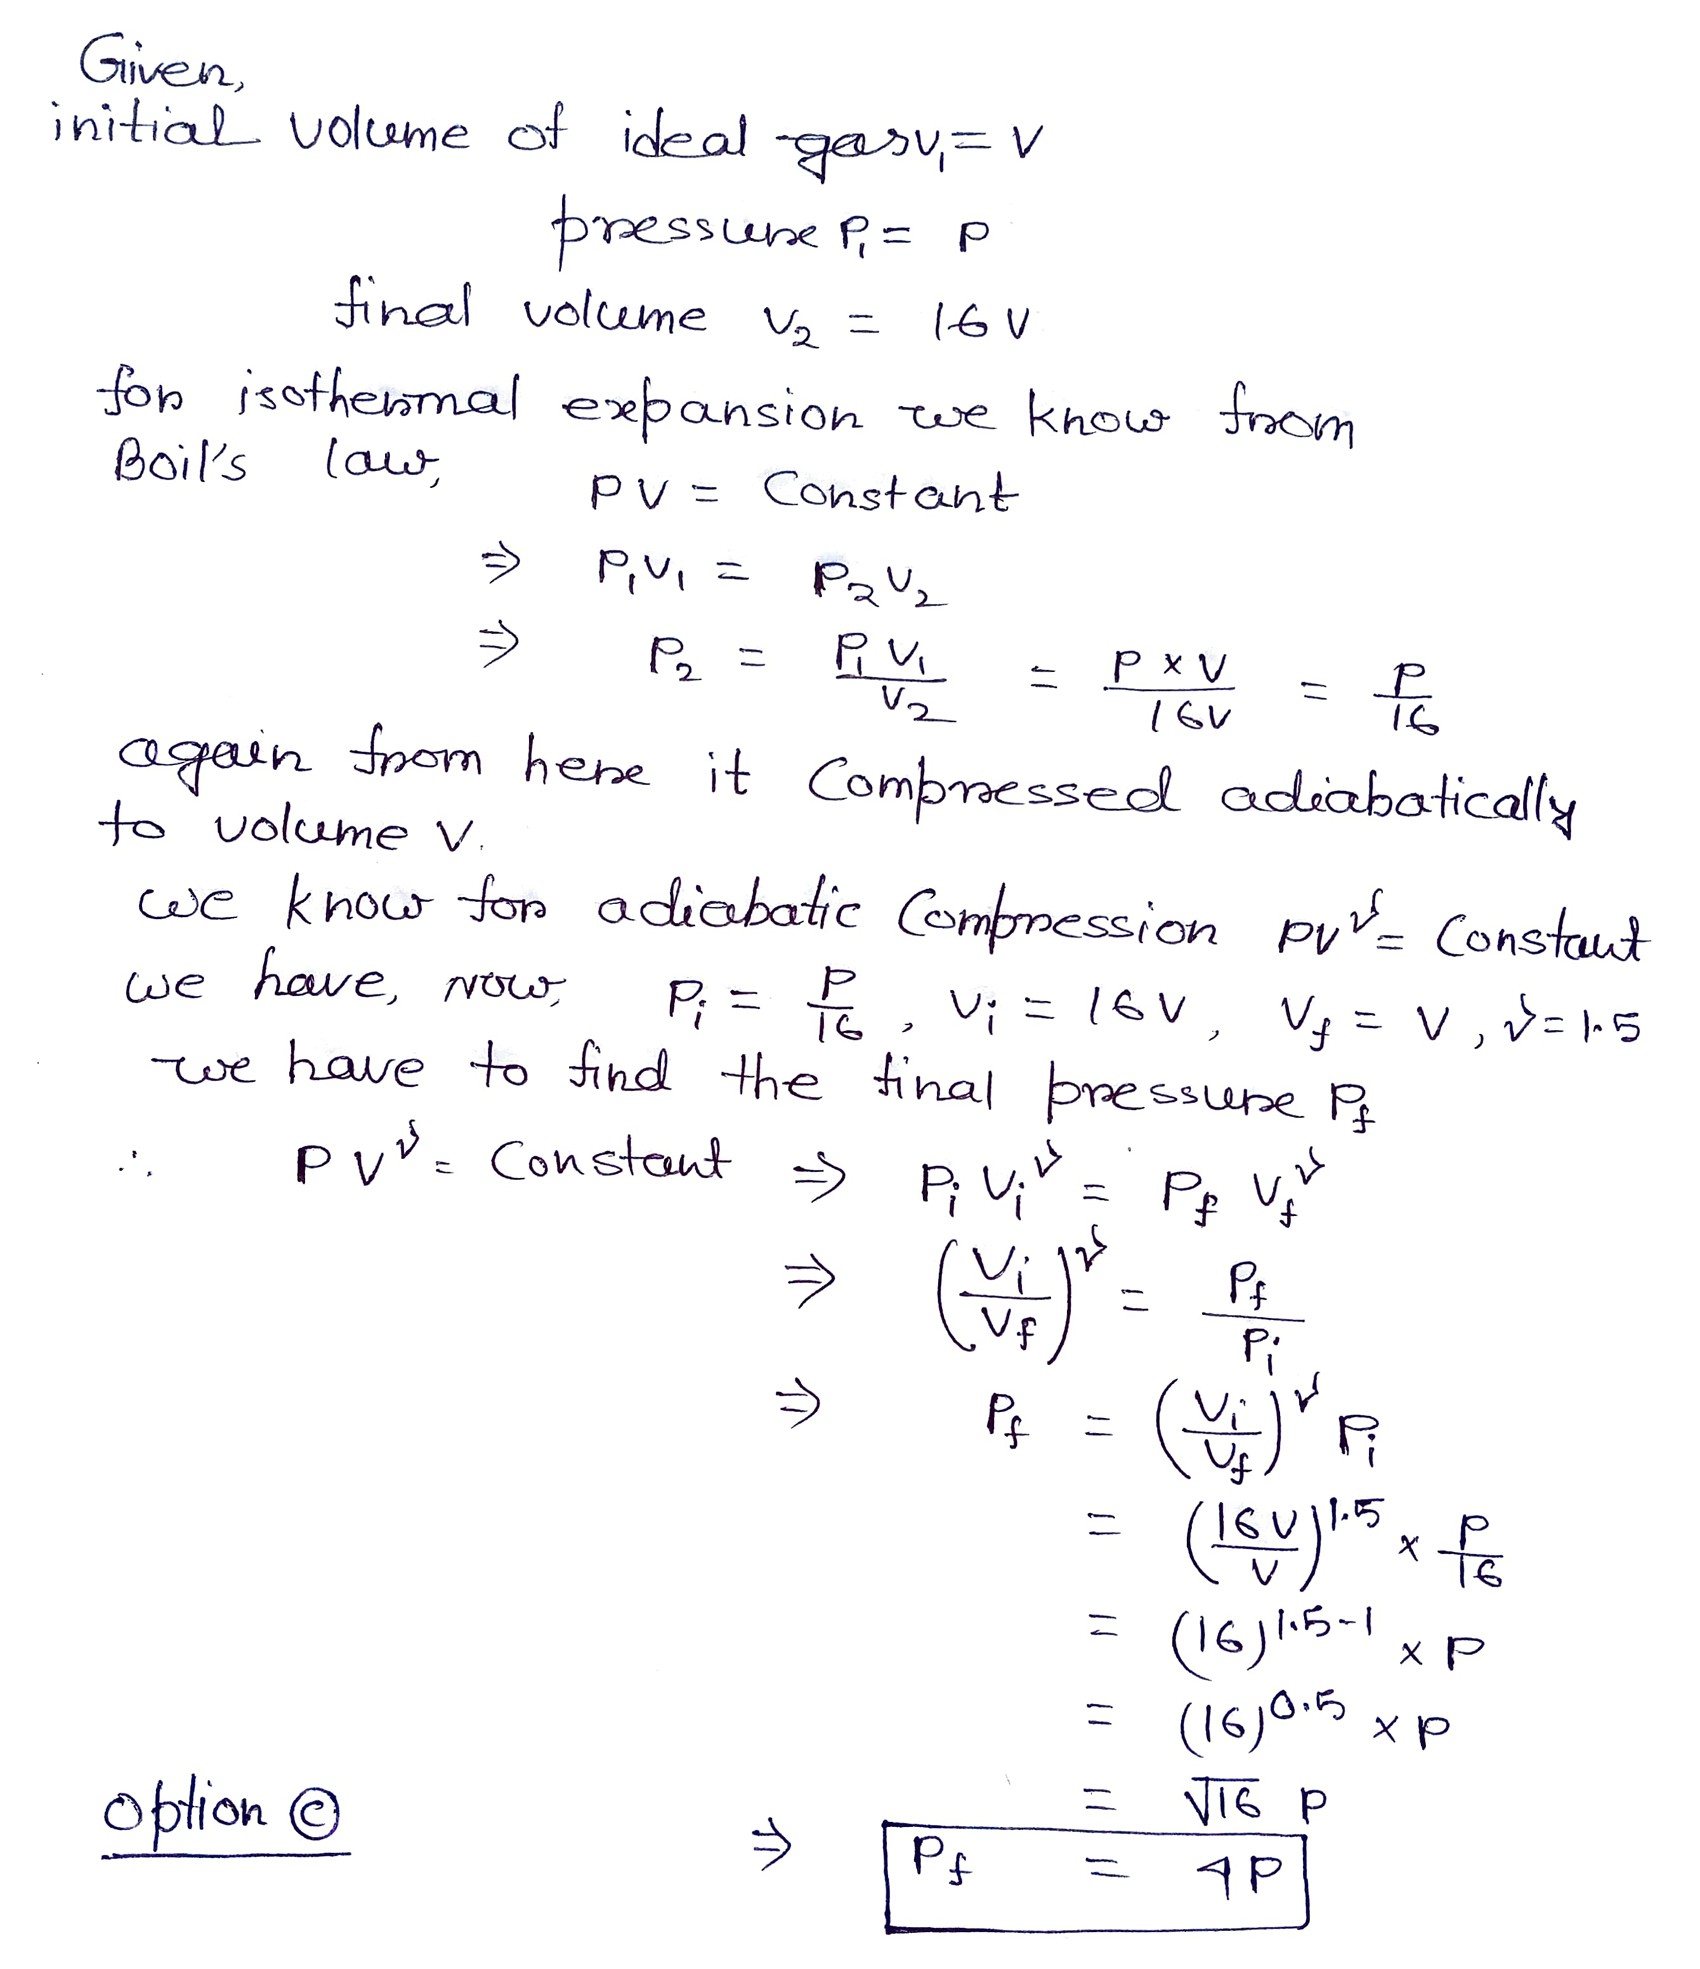 Given,
initial volume of ideal gas V₁ = V
pressure P₁ = P
final volume V₂ = 16 V
for isothermal expansion we know from
Boil's law,
PV = Constant
⇒ P₁V₁ = P₂V₂
⇒ P₂ = P₁V₁/V₂ = P×V/16V = P/16
again from here it Compressed adiabatically
to volume V.
we know for adiabatic Compression PV^γ = Constant
we have, Now, Pᵢ = P/16, Vᵢ = 16V, V_f = V, γ = 1.5
we have to find the final pressure P_f
∴ PV^γ = Constant ⇒ Pᵢ Vᵢ^γ = P_f V_f^γ
⇒ (Vᵢ/V_f)^γ = P_f/Pᵢ
⇒ P_f = (Vᵢ/V_f)^γ Pᵢ
= (16V/V)^1.5 × P/16
= (16)^1.5-1 × P
= (16)^0.5 × P
= √16 P
option ©
⇒ P_f = 4P